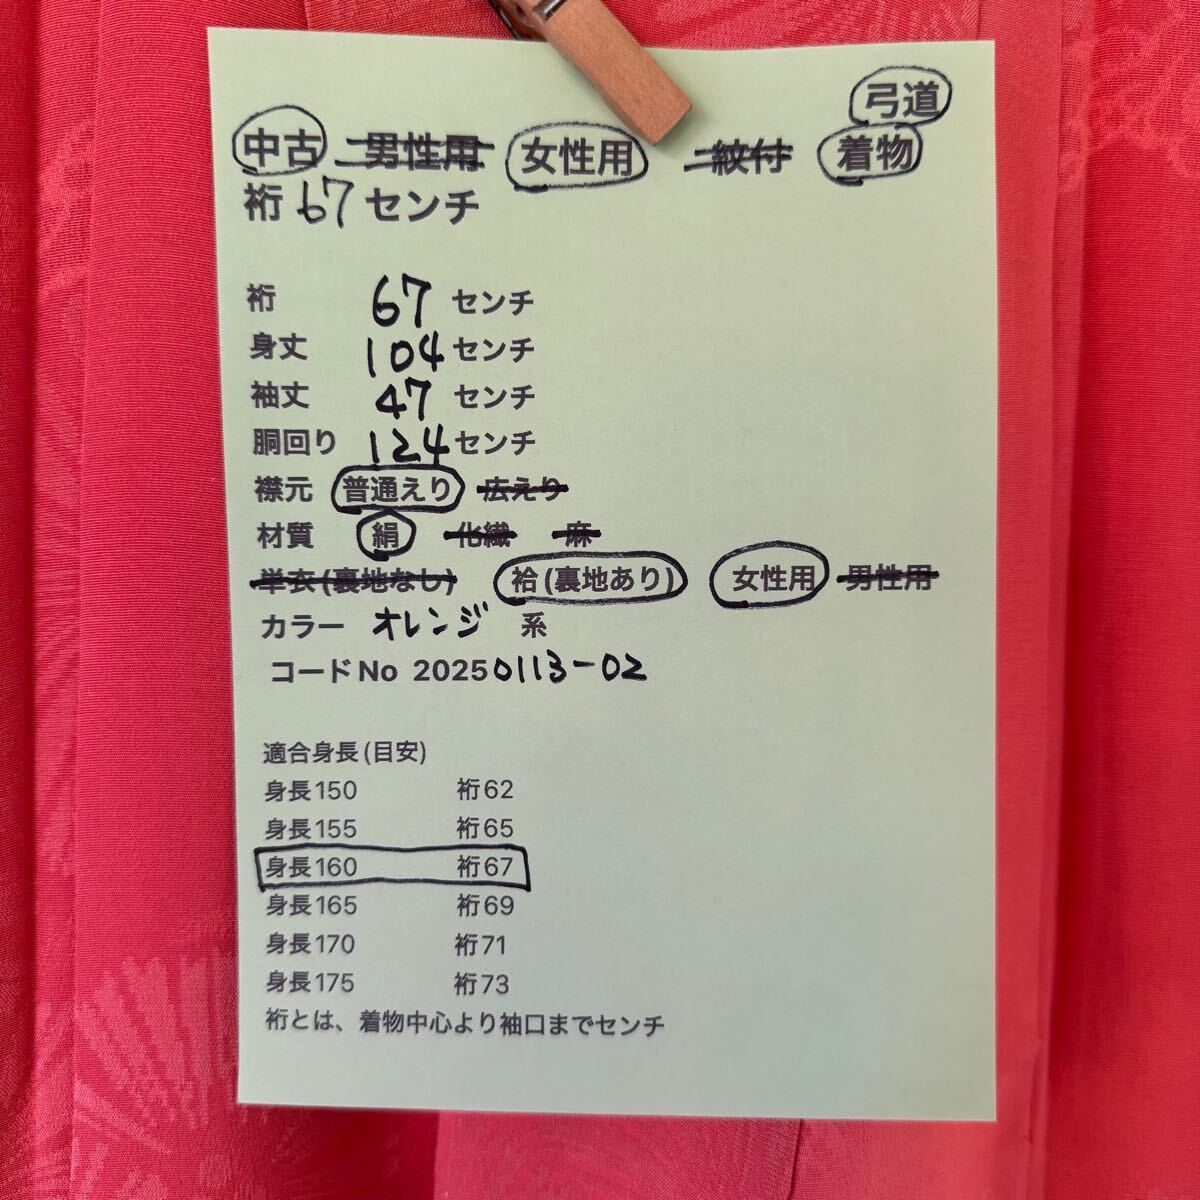 弓道
中古 男性用 女性用 紋付 着物
裄 67 センチ
裄 67 センチ
身丈 104 センチ
袖丈 47 センチ
胴回り 124 センチ
襟元 普通えり 広えり
材質 絹 化繊 麻
単衣(裏地なし) 袷(裏地あり) 女性用 男性用
カラー オレンジ 系
コードNo 20250113-02
適合身長(目安)
身長150 裄62
身長155 裄65
身長160 裄67
身長165 裄69
身長170 裄71
身長175 裄73
裄とは、着物中心より袖口までセンチ